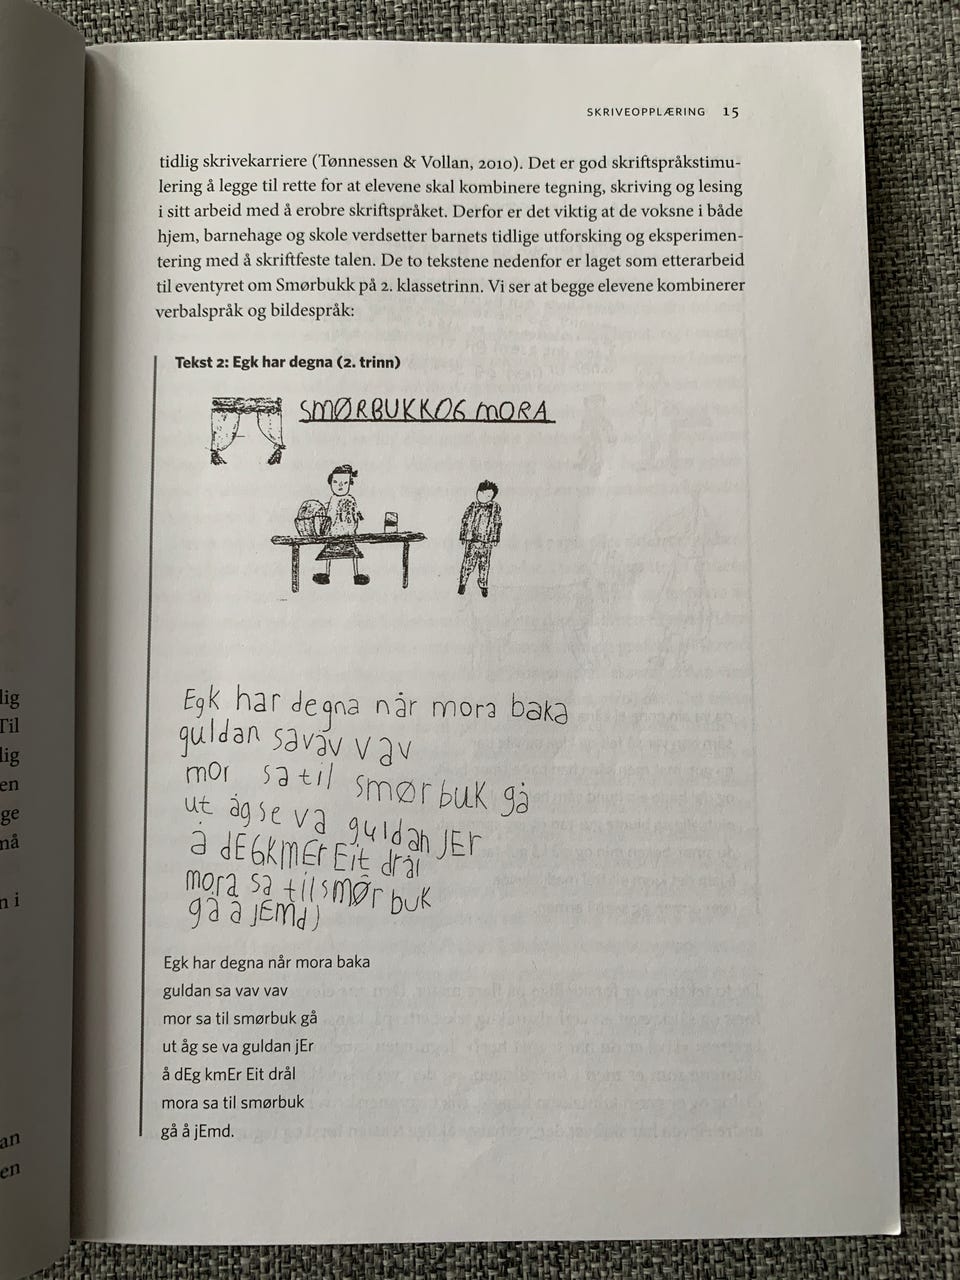 SKRIVEOPPLÆRING 15
tidlig skrivekarriere (Tønnessen & Vollan, 2010). Det er god skriftspråkstimu-
lering å legge til rette for at elevene skal kombinere tegning, skriving og lesing
i sitt arbeid med å erobre skriftspråket. Derfor er det viktig at de voksne i både
hjem, barnehage og skole verdsetter barnets tidlige utforsking og eksperimen-
tering med å skriftfeste talen. De to tekstene nedenfor er laget som etterarbeid
til eventyret om Smørbukk på 2. klassetrinn. Vi ser at begge elevene kombinerer
verbalspråk og bildespråk:
Tekst 2: Egk har degna (2. trinn)
SMØRBUKKOG MORA
Egk har degna når mora baka
guldan savav vav
mor sa til smørbuk gå
ut åg se va guldan jEr
å dEGkmEr Eit drål
mora sa tilsmør buk
gå å jEmd)
Egk har degna når mora baka
guldan sa vav vav
mor sa til smørbuk gå
ut åg se va guldan jEr
å dEg kmEr Eit drål
mora sa til smørbuk
gå å jEmd.
lig
Til
lig
en
ge
må
n i
an
en